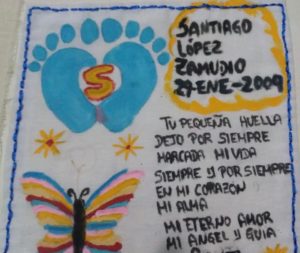 S
SANTIAGO
LÓPEZ
ZAMUDIO
29-ENE-2009
TU PEQUEÑA HUELLA
DEJO POR SIEMPRE
MARCADA MI VIDA
SIEMPRE Y POR SIEMPRE
EN MI CORAZON
MI ALMA
MI ETERNO AMOR
MI ANGEL Y GUIA